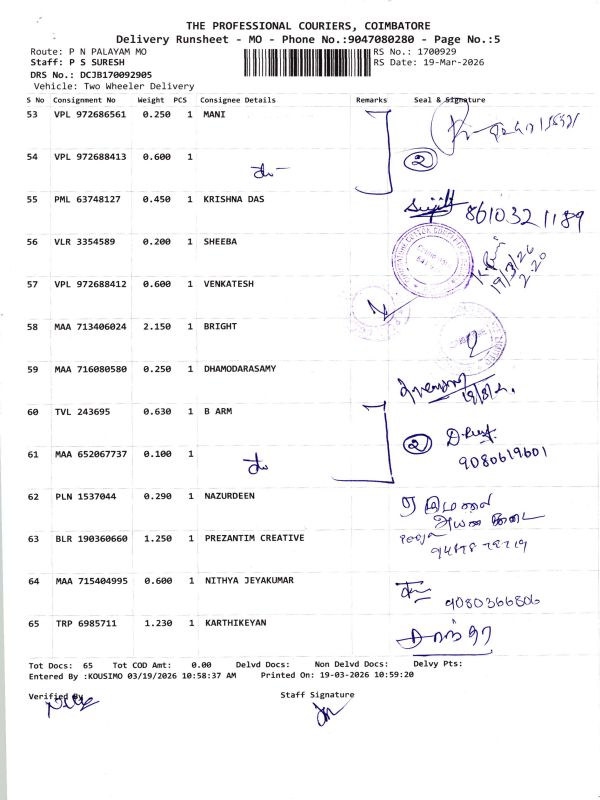 THE PROFESSIONAL COURIERS, COIMBATORE
Delivery Runsheet - MO - Phone No.:9047080280 - Page No.:5
Route: P N PALAYAM MO RS No.: 1700929
Staff: P S SURESH RS Date: 19-Mar-2026
DRS No.: DCJB170092905
Vehicle: Two Wheeler Delivery
S No Consignment No Weight PCS Consignee Details Remarks Seal & Signature
53 VPL 972686561 0.250 1 MANI
54 VPL 972688413 0.600 1 2
55 PML 63748127 0.450 1 KRISHNA DAS 8610321189
56 VLR 3354589 0.200 1 SHEEBA 19/3/26 2.20
57 VPL 972688412 0.600 1 VENKATESH
58 MAA 713406024 2.150 1 BRIGHT
59 MAA 716080580 0.250 1 DHAMODARASAMY
60 TVL 243695 0.630 1 B ARM 2
61 MAA 652067737 0.100 1 9080619601
62 PLN 1537044 0.290 1 NAZURDEEN
63 BLR 190360660 1.250 1 PREZANTIM CREATIVE
64 MAA 715404995 0.600 1 NITHYA JEYAKUMAR 9080366806
65 TRP 6985711 1.230 1 KARTHIKEYAN
Tot Docs: 65 Tot COD Amt: 0.00 Delvd Docs: Non Delvd Docs: Delvy Pts:
Entered By :KOUSIMO 03/19/2026 10:58:37 AM Printed On: 19-03-2026 10:59:20
Verified By Staff Signature